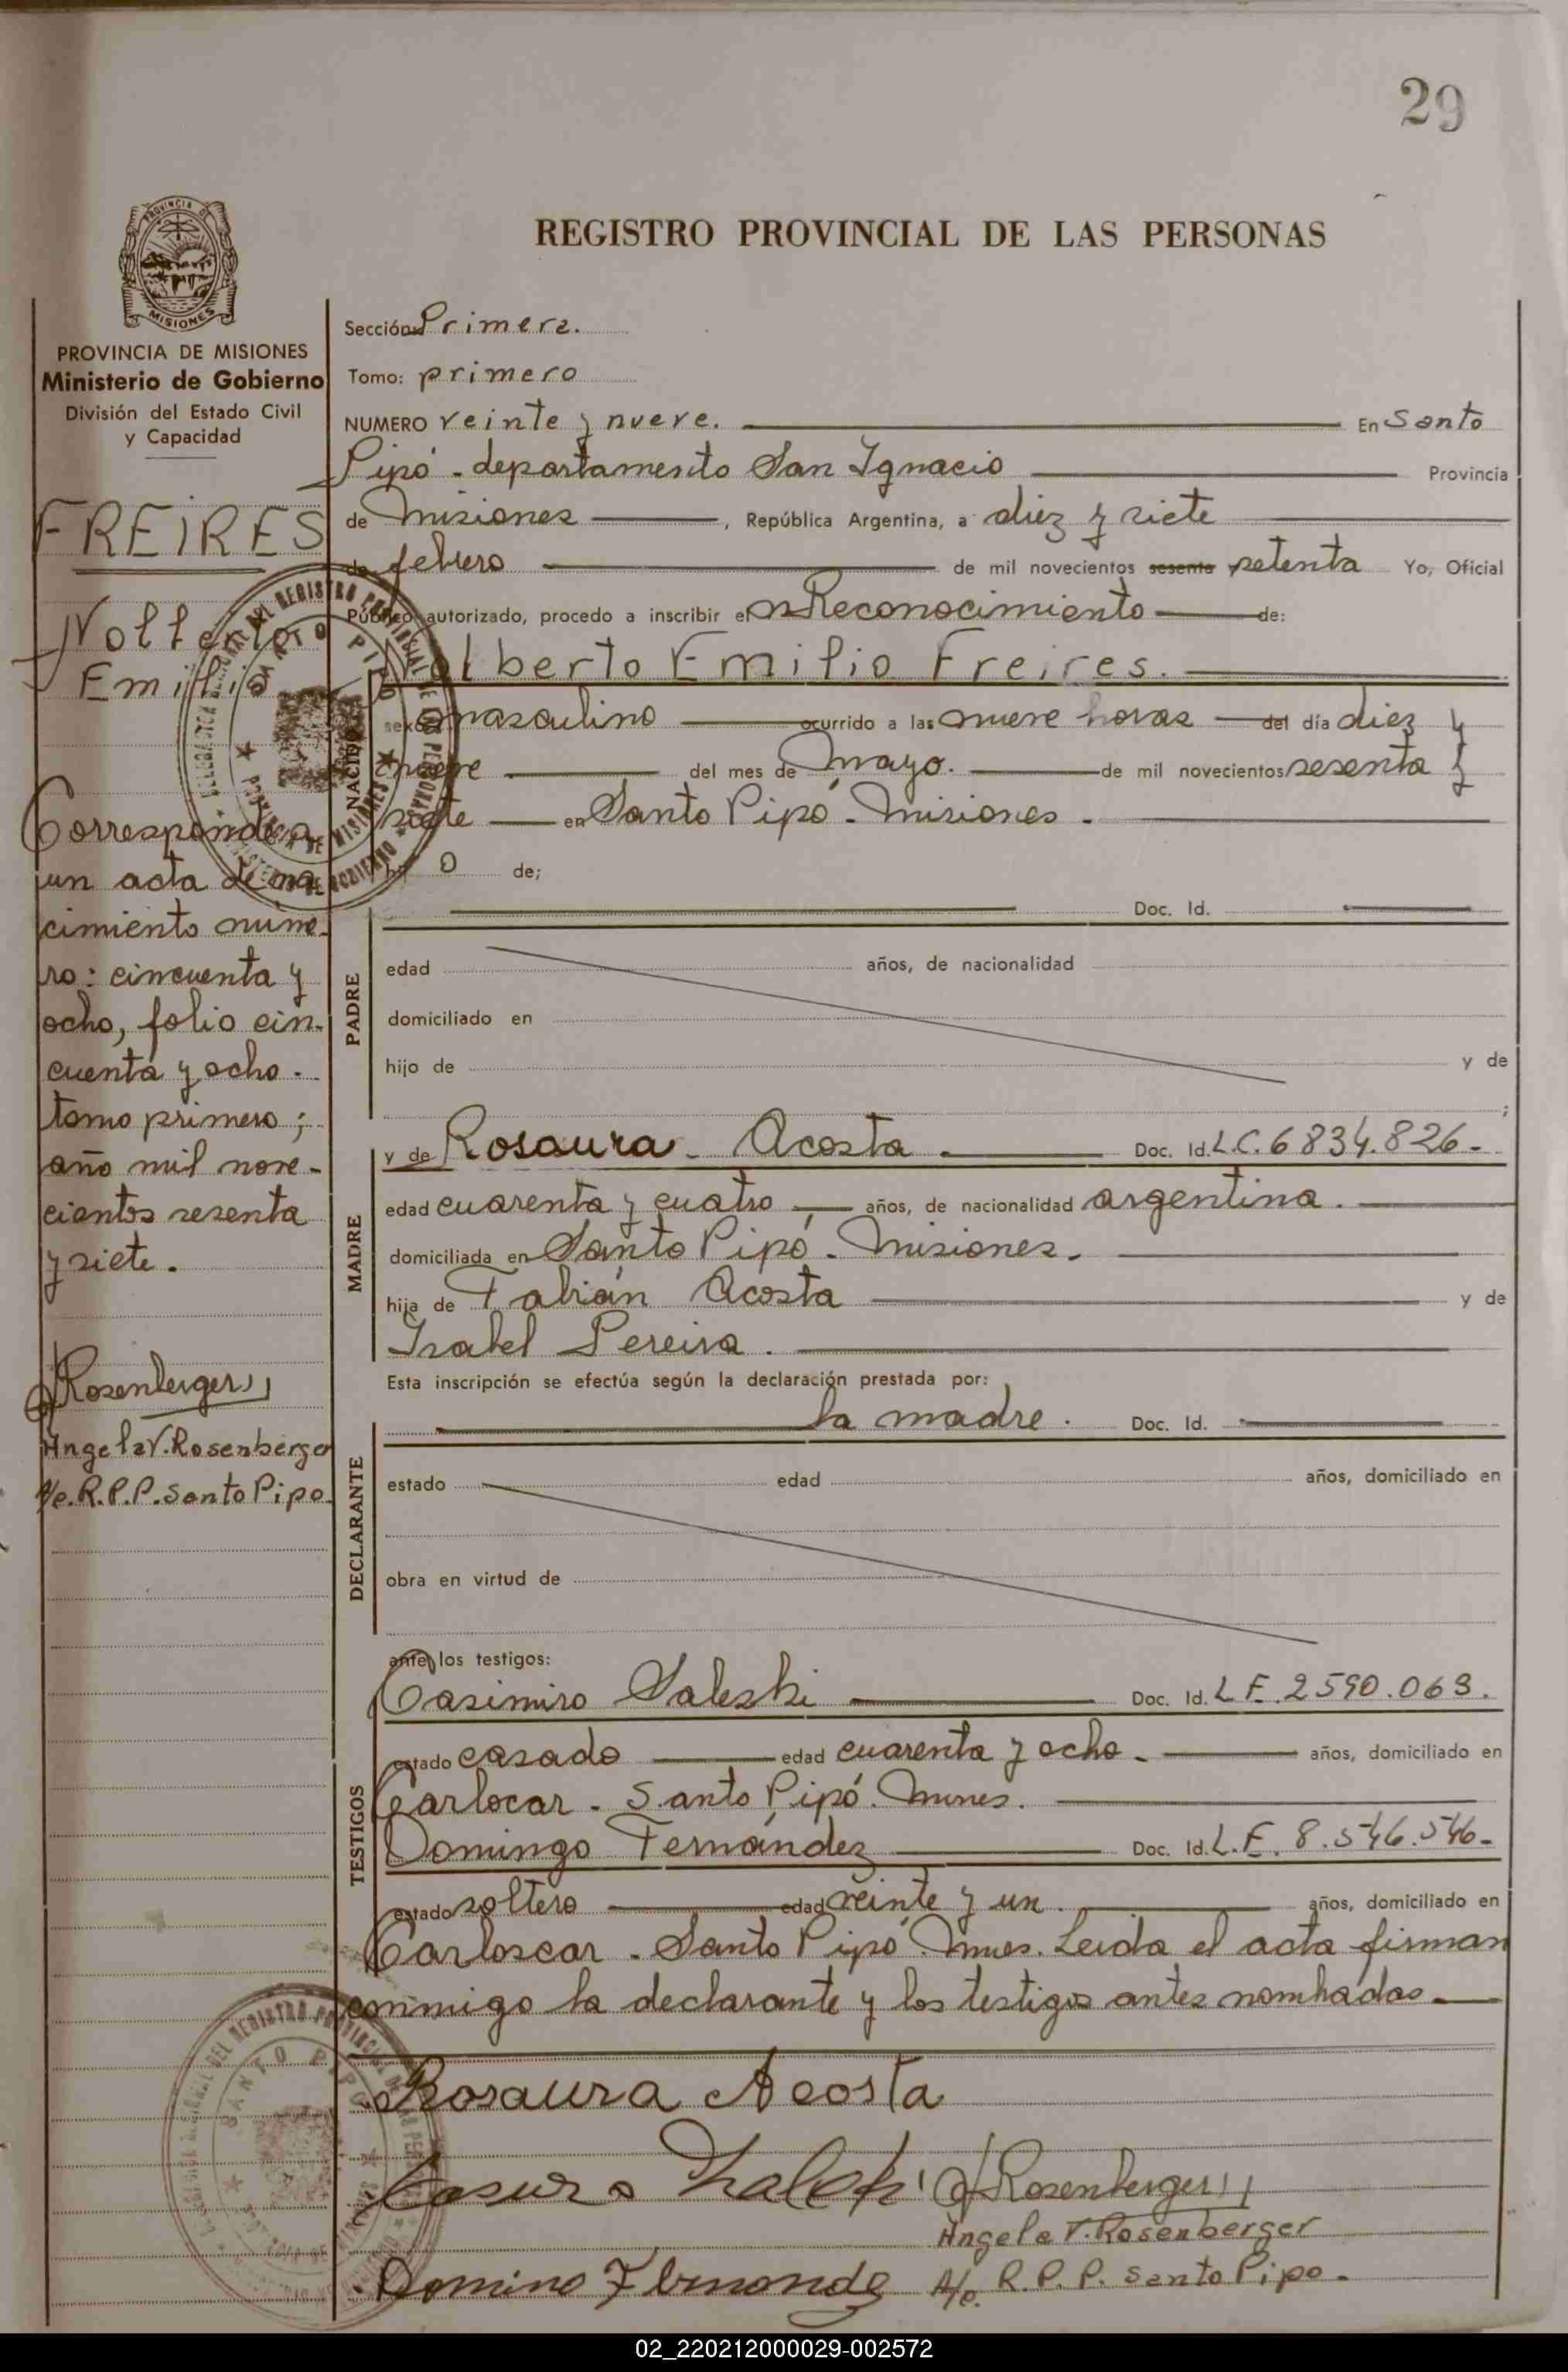 29
PROVINCIA DE
MISIONES
REGISTRO PROVINCIAL DE LAS PERSONAS
PROVINCIA DE MISIONES
Ministerio de Gobierno
División del Estado Civil
y Capacidad
FREIRES
Emilio
Corresponde a
un acta de na
cimiento núme-
ro: cincuenta y
ocho, folio cin-
cuenta y ocho.
tomo primero;
año mil nove-
cientos sesenta
y siete.
Rosenberger
Angela V. Rosenberger
A/c. R.P.P. Santo Pipo.
Sección: Primera.
Tomo: primero
NUMERO veinte y nueve. En Santo
Pipó - departamento San Ignacio Provincia
de Misiones, República Argentina, a diez y siete
de febrero de mil novecientos sesenta setenta Yo, Oficial
Público autorizado, procedo a inscribir el Reconocimiento de:
Alberto Emilio Freires.
NACIDO
sexo masculino ocurrido a las nueve horas del día diez y
nueve del mes de Mayo. de mil novecientos sesenta y
siete en Santo Pipó - Misiones.
hij o de;
Doc. Id.
PADRE
edad años, de nacionalidad
domiciliado en
hijo de y de
;
MADRE
y de Rosaura - Acosta. Doc. Id. L.C. 6834.826-
edad cuarenta y cuatro años, de nacionalidad argentina.
domiciliada en Santo Pipó - Misiones.
hija de Fabián Acosta y de
Isabel Pereira.
Esta inscripción se efectúa según la declaración prestada por:
DECLARANTE
la madre. Doc. Id.
estado edad años, domiciliado en
obra en virtud de
TESTIGOS
ante los testigos:
Casimiro Saleski Doc. Id. L.E. 2590.063.
estado casado edad cuarenta y ocho. años, domiciliado en
Carlocar - Santo Pipó. Mnes.
Domingo Fernández Doc. Id. L.E. 8.546.546-
estado soltero edad veinte y un. años, domiciliado en
Carloscar - Santo Pipó. Mnes. Leída el acta firman
conmigo la declarante y los testigos antes nombrados.
Rosaura Acosta
Rosenberger
Angela V. Rosenberger
A/c. R.P.P. Santo Pipo.
02_220212000029-002572